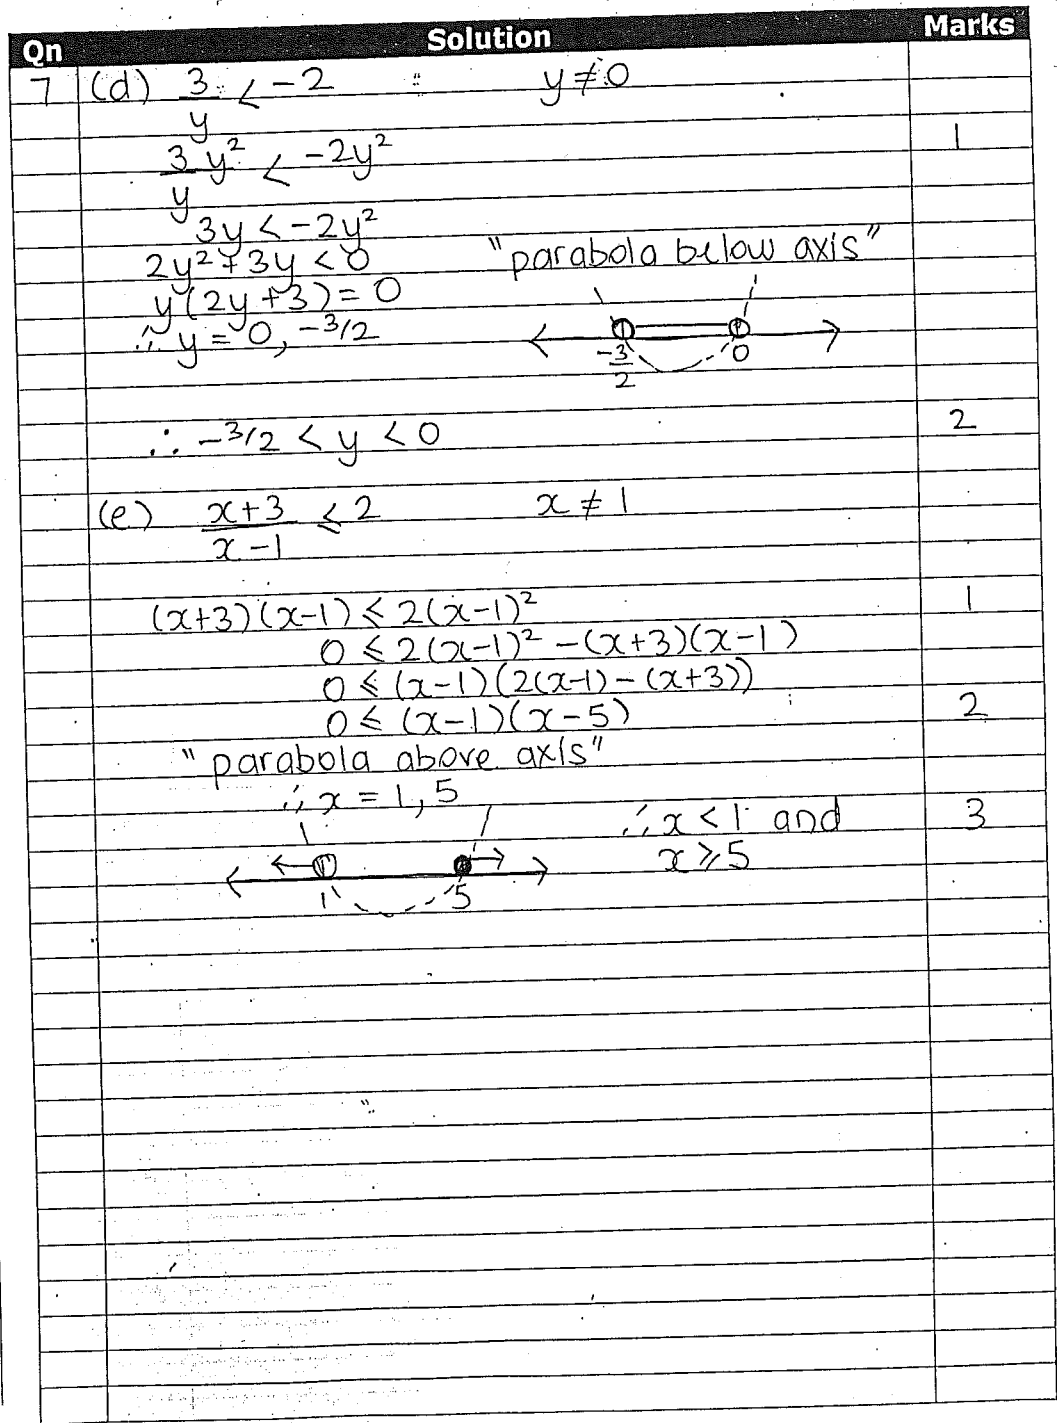 Qn Solution Marks
7 (d) 3/y < -2 y ≠ 0
3/y y² < -2y² 1
3y < -2y²
2y² + 3y < 0 "parabola below axis"
y(2y + 3) = 0
∴ y = 0, -3/2
-3/2 0
∴ -3/2 < y < 0 2
(e) x+3/x-1 ≤ 2 x ≠ 1
(x+3)(x-1) ≤ 2(x-1)² 1
0 ≤ 2(x-1)² - (x+3)(x-1)
0 ≤ (x-1)(2(x-1) - (x+3))
0 ≤ (x-1)(x-5) 2
"parabola above axis"
∴ x = 1, 5
∴ x < 1 and 3
x ≥ 5
1 5